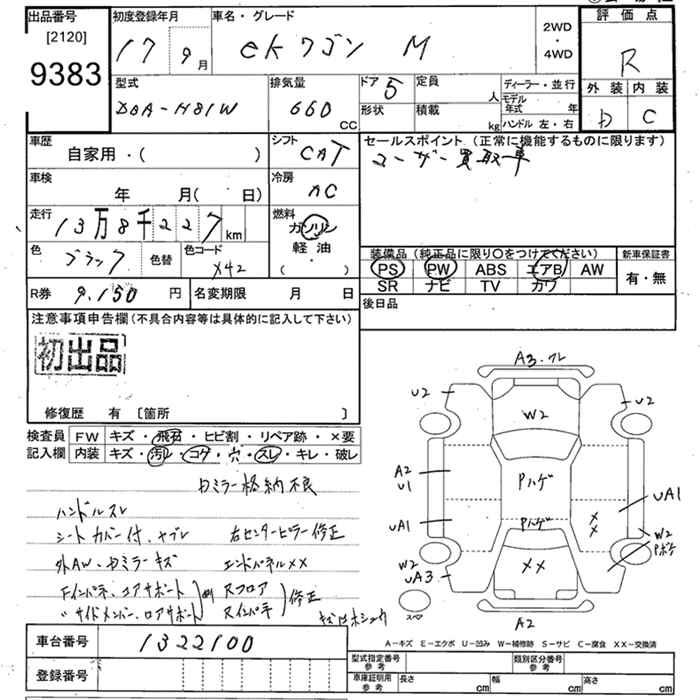 出品番号
[2120]
9383
初度登録年月
17 9月
車名・グレード
ekワゴン M
2WD
・
4WD
評価点
R
型式
DBA-H81W
排気量
660 CC
ドア 5
形状
定員 人
積載 kg
ディーラー・並行
モデル年式 年
ハンドル 左・右
外装 内装
D C
車歴
自家用・( )
シフト
CAT
セールスポイント (正常に機能するものに限ります)
ユーザー買取車
車検
年 月( 日)
冷房
AC
走行
13万8千227km
燃料
ガソリン
軽油
( ・ )
色
ブラック
色替
色コード
X42
装備品 (純正品に限り〇をつけてください)
PS PW ABS エアB AW
SR ナビ TV カワ
新車保証書
有・無
R券 9,150円
名変期限 月 日
後日品
注意事項申告欄(不具合内容等は具体的に記入して下さい)
初出品
修復歴 有 [箇所 ]
検査員
記入欄
FW キズ・飛石・ヒビ割・リペア跡・×要
内装 キズ・汚レ・コゲ・穴・スレ・キレ・破レ
ミラー格納不良
ハンドルスレ
シートカバー付、ヤブレ
右センターピラー修正
外AW、ミラーキズ
エンドパネル××
Fインパネ、コアサポート
サイドメンバー、ロアサポート
Rフロア
Rインパネ
修正
A3.ワレ
U2
U2
W2
A2
U1
Pハゲ
UA1
UA1
Pハゲ
××
W2
Pボケ
W2
UA3
××
スペア
A2
A-キズ E-エクボ U-凹み W-補修跡 S-サビ C-腐食 XX-交換済
車台番号
1322100
登録番号
型式指定番号
参考
類別区分番号
参考
車庫証明用
参考
長さ cm
幅 cm
高さ cm